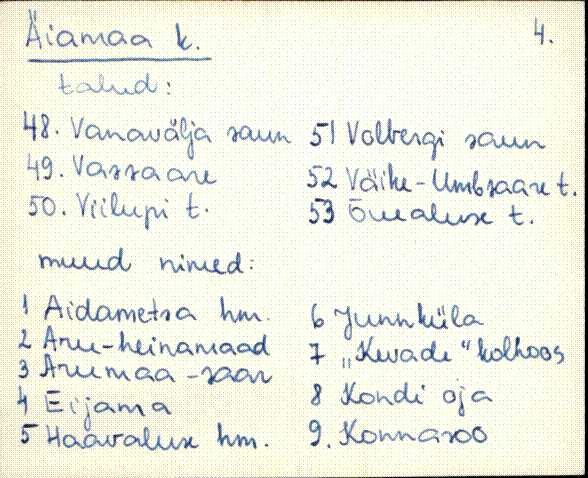 Äiamaa k.
4.
talud:
48. Vanavälja saun
49. Vassaare
50. Viilupi t.
51 Volbergi saun
52 Väike-Umbsaare t.
53 Õuealuse t.
muud nimed:
1 Aidametsa hm.
2 Aru-heinamaad
3 Arumaa-saar
4 Eijama
5 Haavaluse hm.
6 Junnküla
7 „Kevade" kolhoos
8 Kondi oja
9. Konnasoo